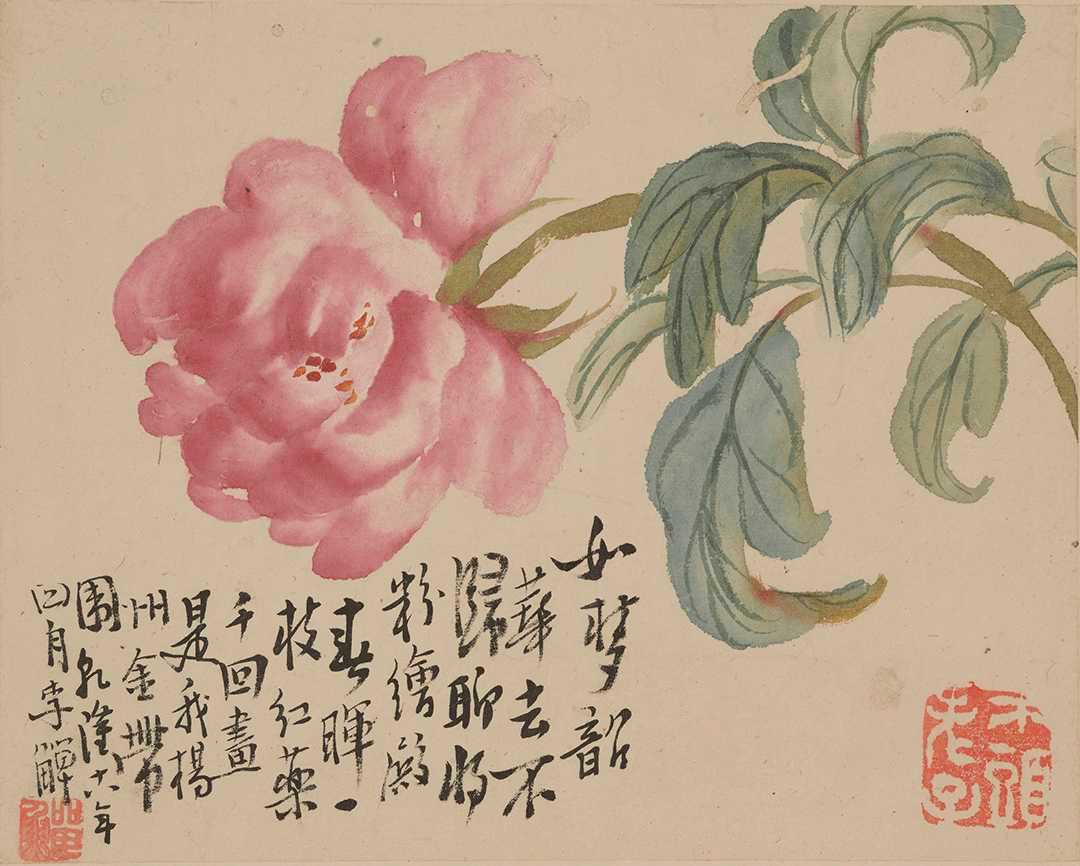 如梦韶
華去不
歸聊将
粉繪殿
春暉一
枝紅藥
千回畫
是我揚
州金帶
圍乾隆十年
四月李鱓